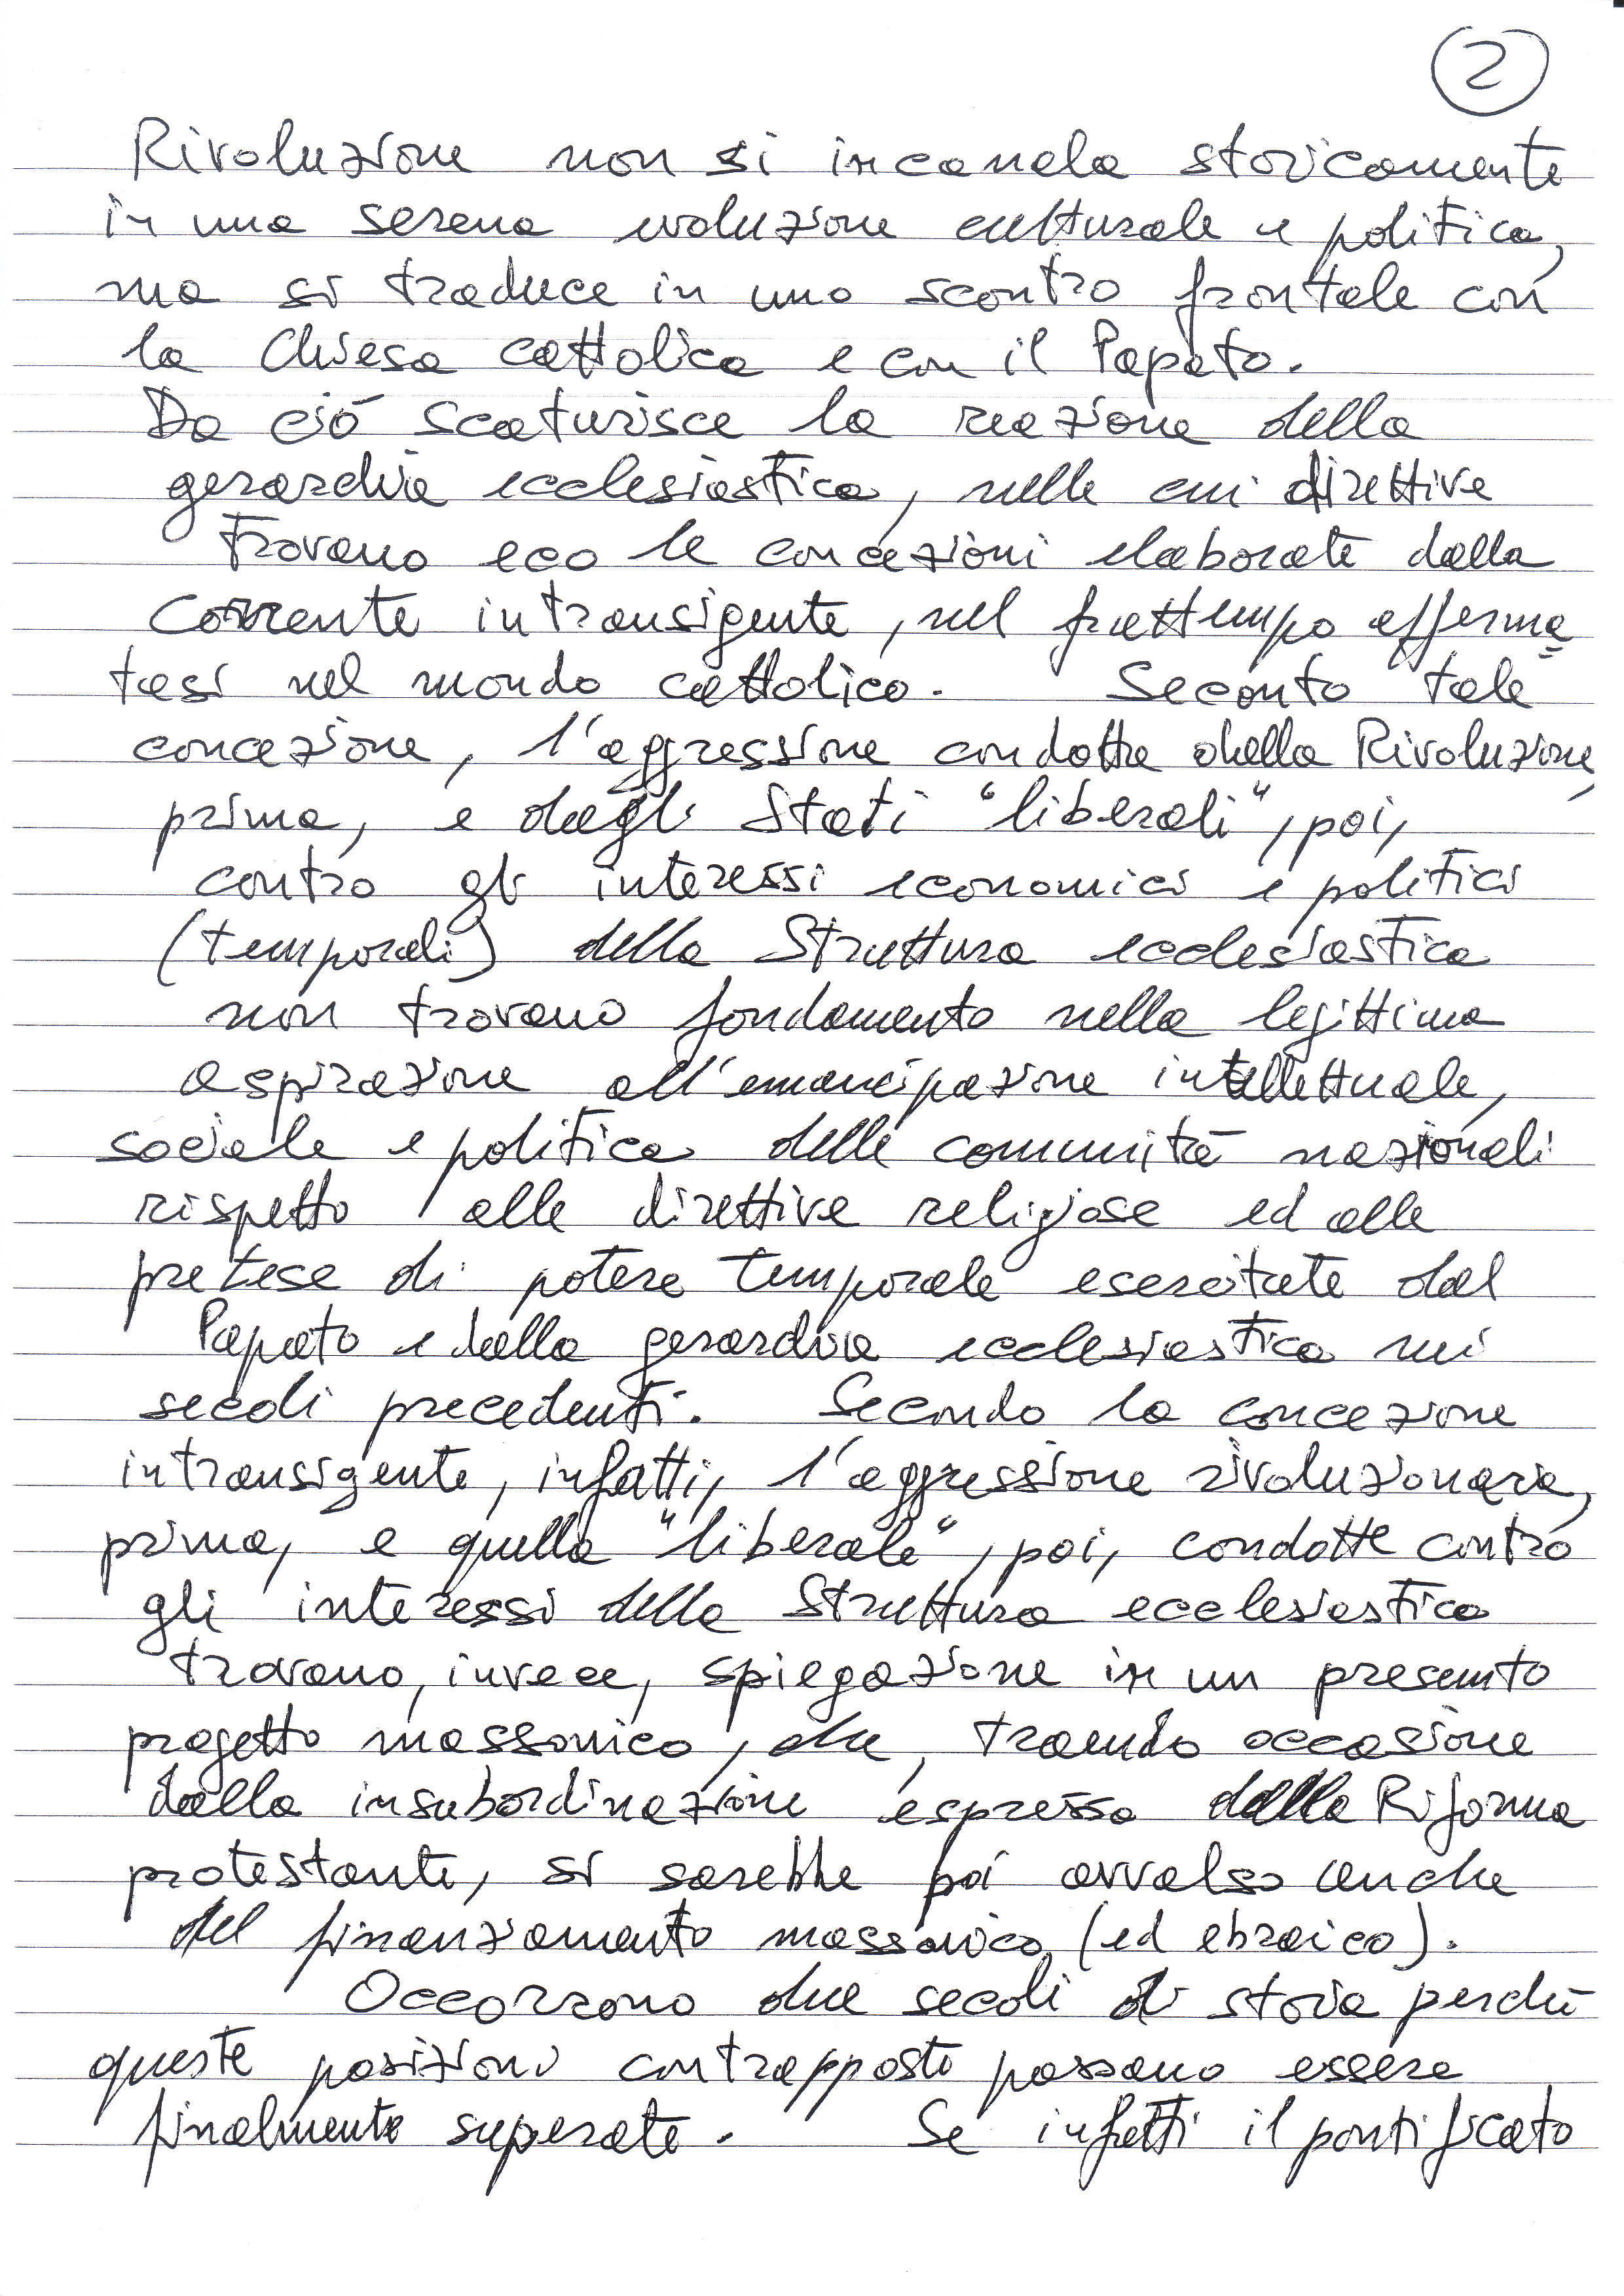 2
Rivoluzione non si incanala storicamente
in una serena evoluzione culturale e politica,
ma si traduce in uno scontro frontale con
la Chiesa cattolica e con il Papato.
Da ciò scaturisce la reazione della
gerarchia ecclesiastica, nelle cui direttive
trovano eco le concezioni elaborate dalla
corrente intransigente, nel frattempo afferma
tasi nel mondo cattolico. Seconto tale
concezione, l'aggressione condotta dalla Rivoluzione,
prima, e dagli Stati "liberali", poi,
contro gli interessi economici e politici
(temporali) della Struttura ecclesiastica
non trovano fondamento nella legittima
aspirazione all'emancipazione intellettuale,
sociale e politica delle comunità nazionali
rispetto alle direttive religiose ed alle
pretese di potere temporale esercitate dal
Papato e dalla gerarchia ecclesiastica nei
secoli precedenti. Secondo la concezione
intransigente, infatti, l'aggressione rivoluzionaria,
prima, e quella "liberale", poi, condotte contro
gli interessi della Struttura ecclesiastica
trovano, invece, spiegazione in un presunto
progetto massonico, che, traendo occasione
dalla insubordinazione espressa dalla Riforma
protestante, si sarebbe poi avvalso anche
del finanziamento massonico (ed ebraico).
Occorrono due secoli di storia perché
queste posizioni contrapposte possano essere
finalmente superate. Se infatti il pontificato